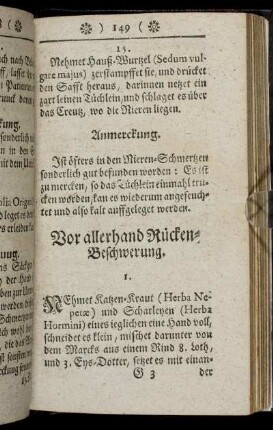 149
15.
Nehmet Hauß-Wurtzel (Sedum vul-
gare majus) zerstampffet sie, und drücket
den Safft heraus, darinnen netzet ein
zart leinen Tüchlein, und schlaget es über
das Creutz, wo die Nieren liegen.
Anmerckung.
Ist öfters in den Nieren-Schmertzen
sonderlich gut befunden worden: Es ist
zu mercken, so das Tüchlein einmahl tru-
cken worden, kan es wiederum angefeuch-
tet und also kalt auffgeleget werden.
Vor allerhand Rücken-
Beschwerung.
1.
NEhmet Katzen-Kraut (Herba Ne-
petæ) und Scharleyen (Herba
Hormini) eines ieglichen eine Hand voll,
schneidet es klein, mischet darunter von
dem Marcks aus einem Rind 8. Loth,
und 3. Eys-Dotter, setzet es mit einan-
G 3 der